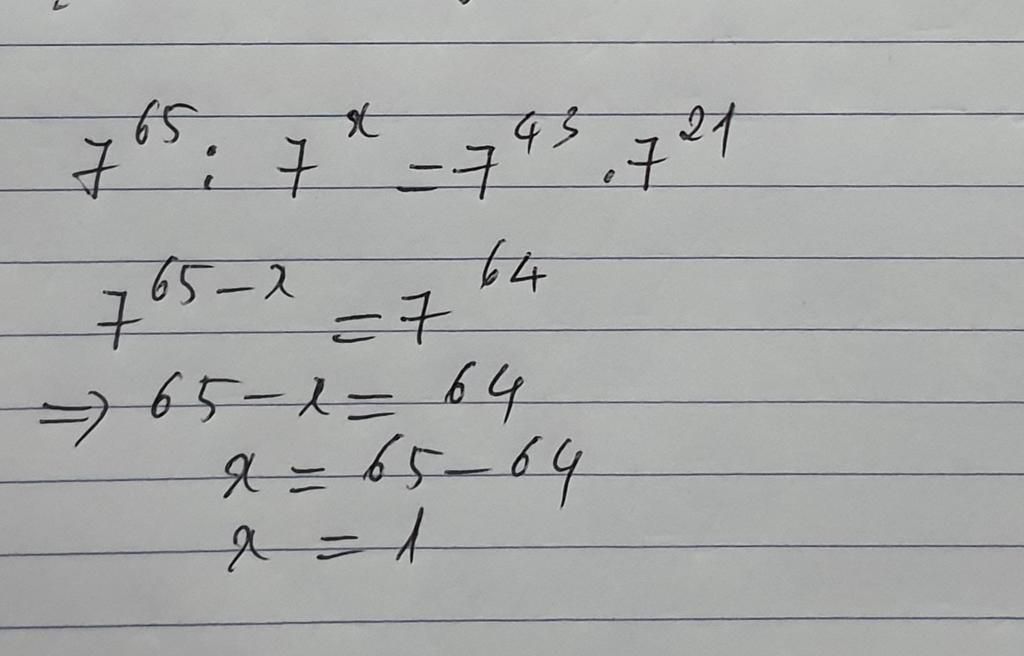 7⁶⁵ : 7ˣ = 7⁴³ . 7²¹
7⁶⁵⁻ˣ = 7⁶⁴
⇒ 65 - x = 64
x = 65 - 64
x = 1